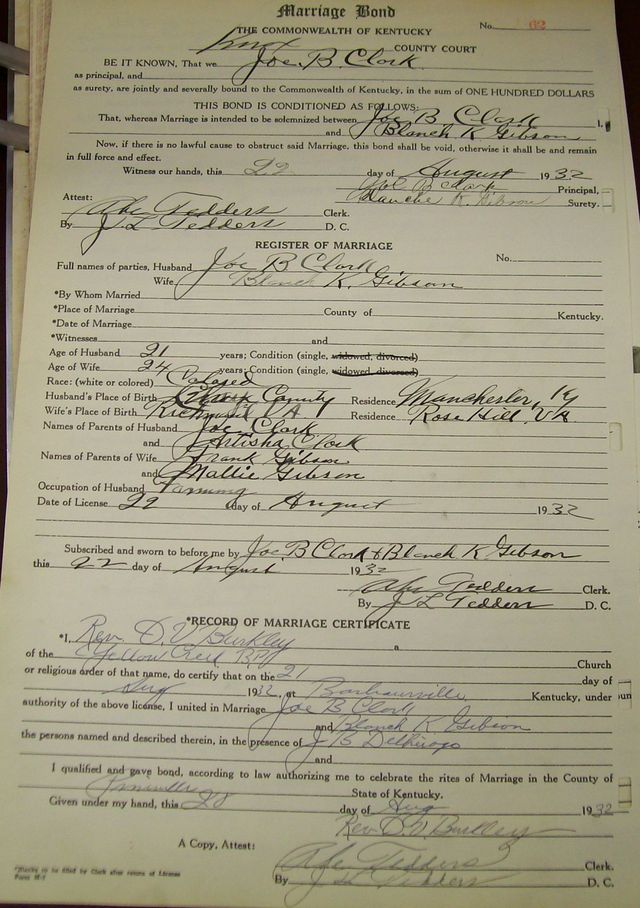 Marriage Bond
No. 62
THE COMMONWEALTH OF KENTUCKY
Knox COUNTY COURT
BE IT KNOWN, That we Joe B Clark
as principal, and
as surety, are jointly and severally bound to the Commonwealth of Kentucky, in the sum of ONE HUNDRED DOLLARS
THIS BOND IS CONDITIONED AS FOLLOWS:
That, whereas Marriage is intended to be solemnized between Joe B Clark
and Blanch K Gibson
Now, if there is no lawful cause to obstruct said Marriage, this bond shall be void, otherwise it shall be and remain
in full force and effect.
Witness our hands, this 22 day of August 1932
Joe B Clark Principal,
Blanche K. Gibson Surety.
Attest:
Abe Tedders Clerk.
By J L Tedders D. C.
REGISTER OF MARRIAGE
Full names of parties, Husband Joe B Clark No.
Wife Blanch K. Gibson
*By Whom Married
*Place of Marriage County of Kentucky.
*Date of Marriage
*Witnesses and
Age of Husband 21 years; Condition (single, widowed, divorced)
Age of Wife 24 years; Condition (single, widowed, divorced)
Race: (white or colored) Colored
Husband's Place of Birth County Residence Manchester, Ky
Wife's Place of Birth Richmond VA Residence Rose Hill, VA
Names of Parents of Husband Joe Clark
and Artisha Clark
Names of Parents of Wife Frank Gibson
and Mallie Gibson
Occupation of Husband Farming
Date of License 22 day of August 1932
Subscribed and sworn to before me by Joe B Clark & Blanch K Gibson
this 22 day of August 1932
Abe Tedders Clerk.
By J L Tedders D. C.
*RECORD OF MARRIAGE CERTIFICATE
*I, Rev. D. V. Burkley a
of the Yellow Creek Church
or religious order of that name, do certify that on the 21 day of
Aug 1932, at Barbourville Kentucky, under
authority of the above license, I united in Marriage Joe B Clark
and Blanch K Gibson
the persons named and described therein, in the presence of J B
and
I qualified and gave bond, according to law authorizing me to celebrate the rites of Marriage in the County of
State of Kentucky.
Given under my hand, this 28 day of Aug 1932
Rev D. V. Burkley
A Copy, Attest:
Abe Tedders Clerk.
By J L Tedders D. C.
*Blanks to be filed by Clerk after return of License
Form M-7